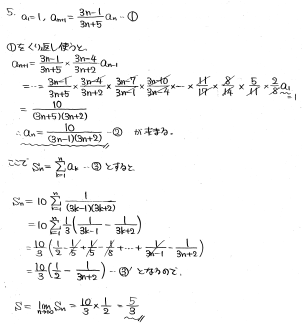 5. a₁=1, aₙ₊₁ = (3n-1)/(3n+5) aₙ …①
①をくり返し使うと、
aₙ₊₁ = (3n-1)/(3n+5) × (3n-4)/(3n+2) aₙ₋₁
= … = (3n-1)/(3n+5) × (3n-4)/(3n+2) × (3n-7)/(3n-1) × (3n-10)/(3n-4) × … × 11/17 × 8/14 × 5/11 × 2/8 a₁
=1
= 10/((3n+5)(3n+2))
∴ aₙ = 10/((3n-1)(3n+2)) …② が求まる。
ここで Sₙ = Σ[k=1→n] aₖ …③ とすると
Sₙ = 10 Σ[k=1→n] 1/((3k-1)(3k+2))
= 10 Σ[k=1→n] 1/3 (1/(3k-1) - 1/(3k+2))
= 10/3 (1/2 - 1/5 + 1/5 - 1/8 + … + 1/(3n-1) - 1/(3n+2))
= 10/3 (1/2 - 1/(3n+2)) …③' となるので、
S = lim[n→∞] Sₙ = 10/3 × 1/2 = 5/3